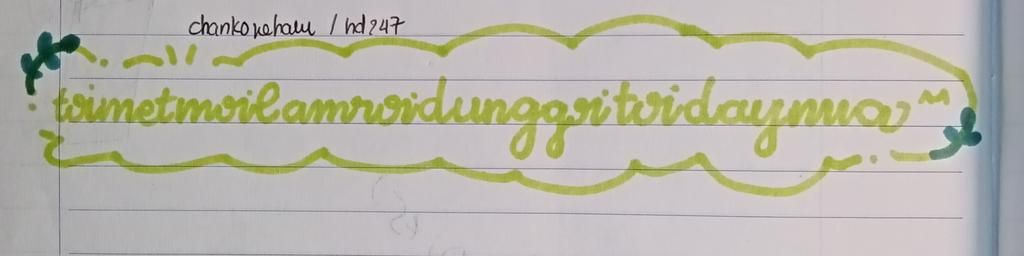 chankonehaw / hd247
toimetmoilamroidunggoitoidaynua ^^